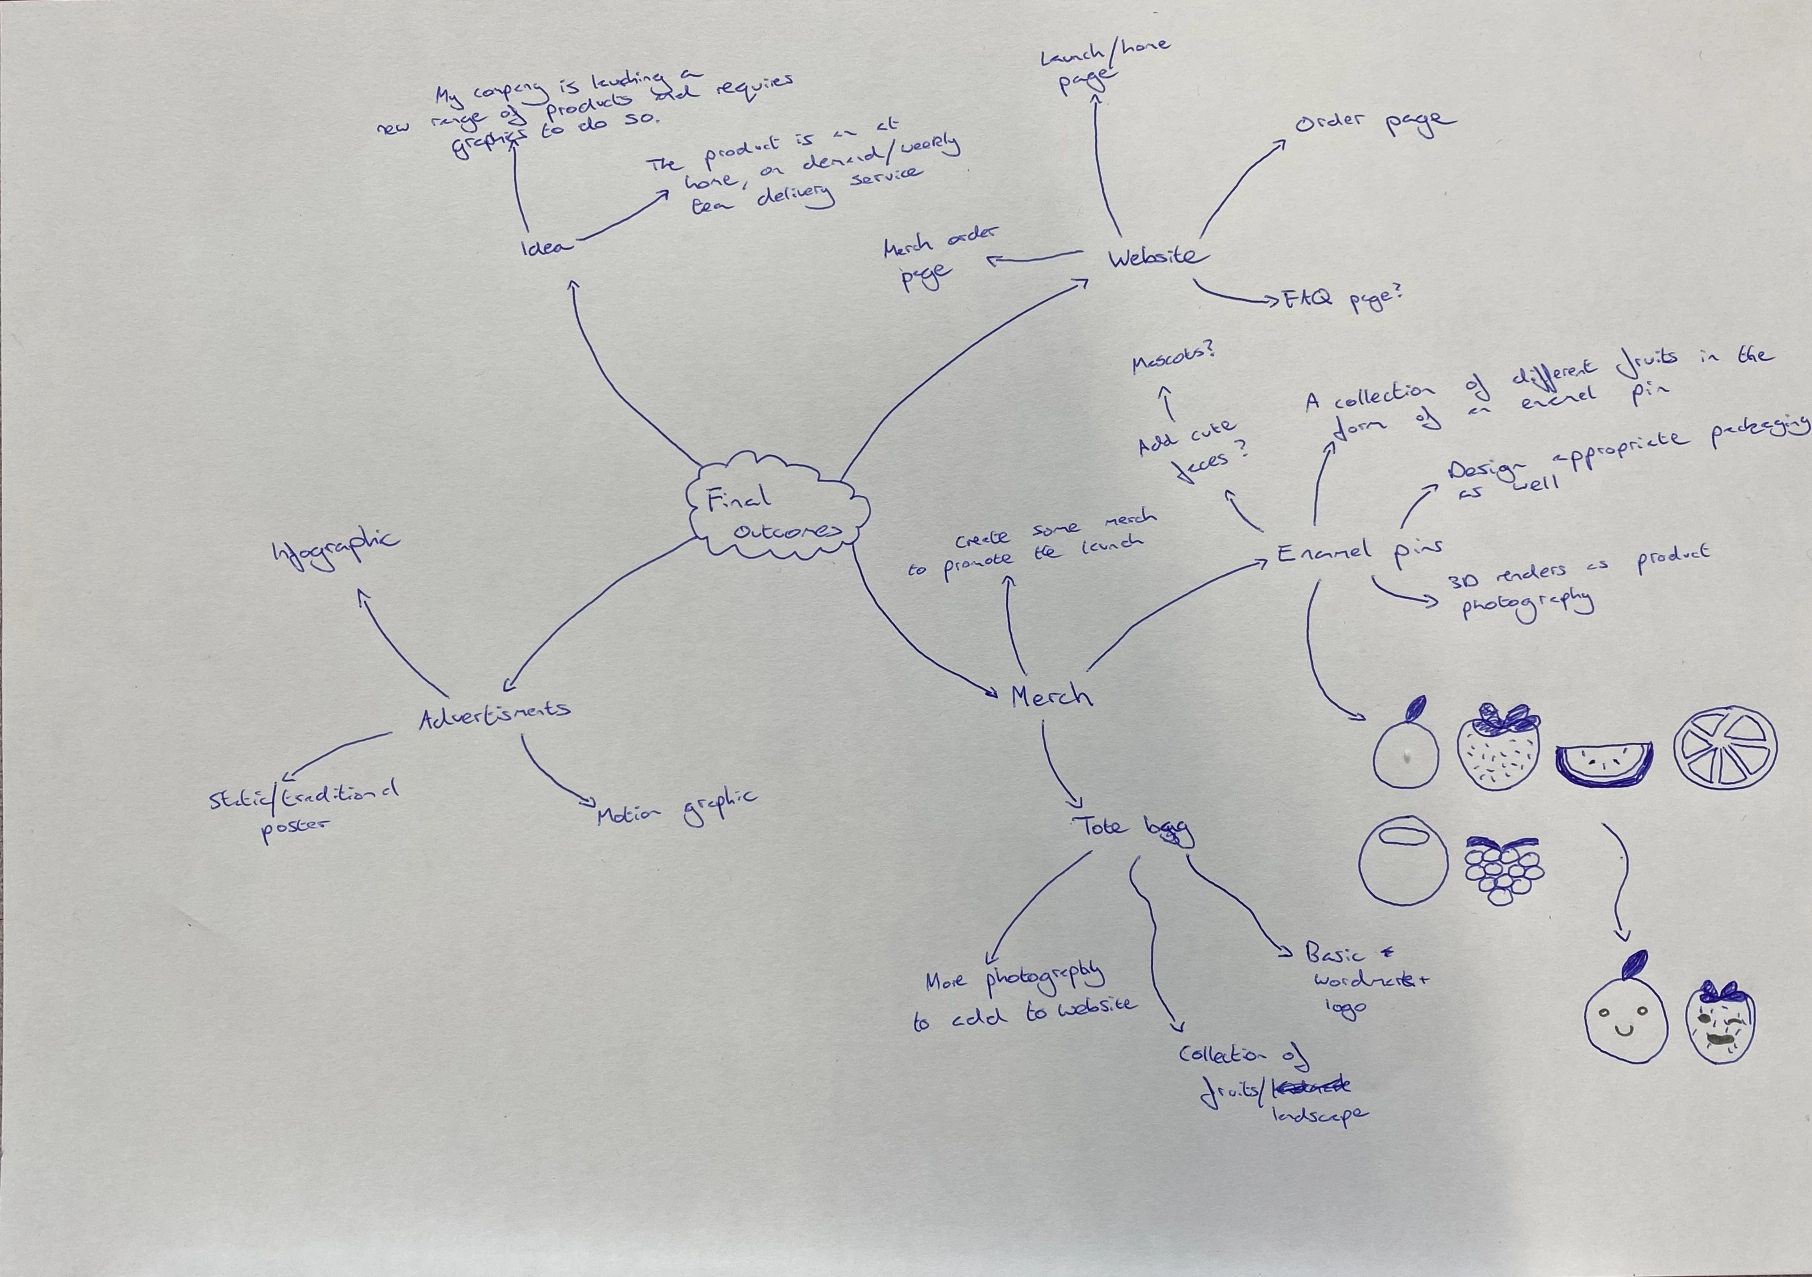 My company is lauching a
new range of products and requires
graphics to do so.
The product is an at
home, on demand/weekly
tea delivery service
Idea
Launch/home
page
Order page
Merch order
page
Website
FAQ page?
Mascots?
Add cute
faces?
A collection of different fruits in the
form of an enamel pin
Design appropriate packaging
as well
Enamel pins
3D renders as product
photography
Final
Outcomes
Create some merch
to promote the launch
Merch
Infographic
Advertisments
Static/traditional
poster
Motion graphic
Tote bag
More photography
to add to website
Basic
wordmark +
logo
Collection of
fruits/
landscape